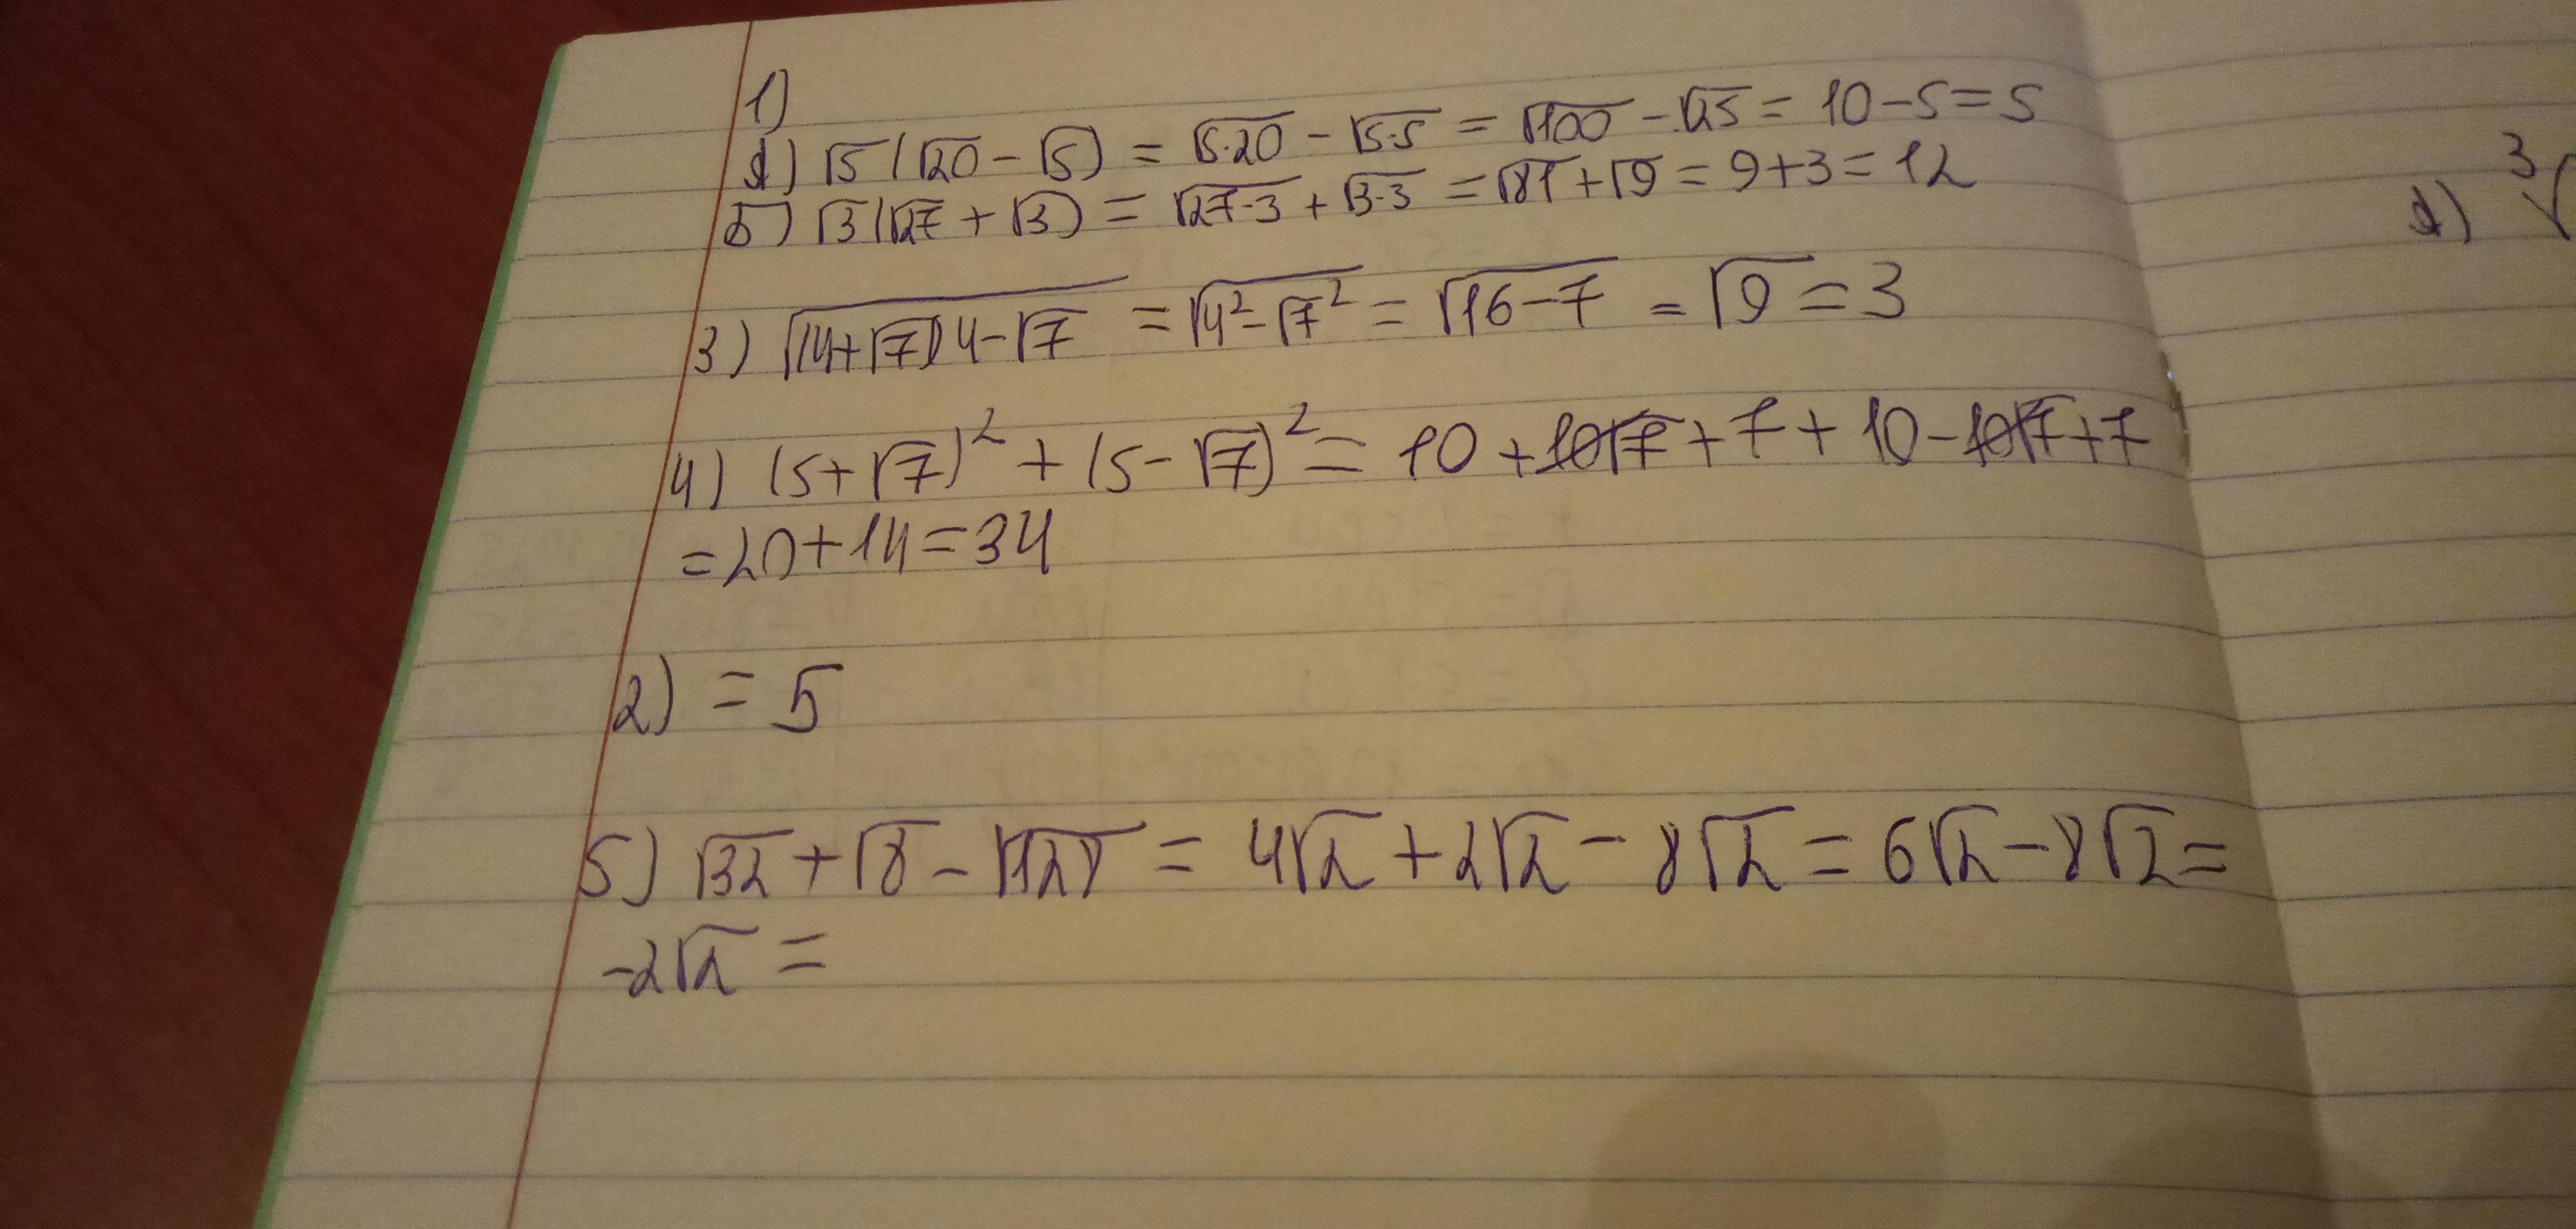 1)
а) √5(√20 - √5) = √5·20 - √5·5 = √100 - √25 = 10 - 5 = 5
б) √3(√27 + √3) = √27·3 + √3·3 = √81 + √9 = 9 + 3 = 12
3) √(4+√7)4-√7 = √4²-√7² = √16-7 = √9 = 3
4) (5+√7)² + (5-√7)² = 10 + 10√7 + 7 + 10 - 10√7 + 7
= 20 + 14 = 34
2) = 5
5) √32 + √8 - √128 = 4√2 + 2√2 - 8√2 = 6√2 - 8√2 =
-2√2 =
а) ³√